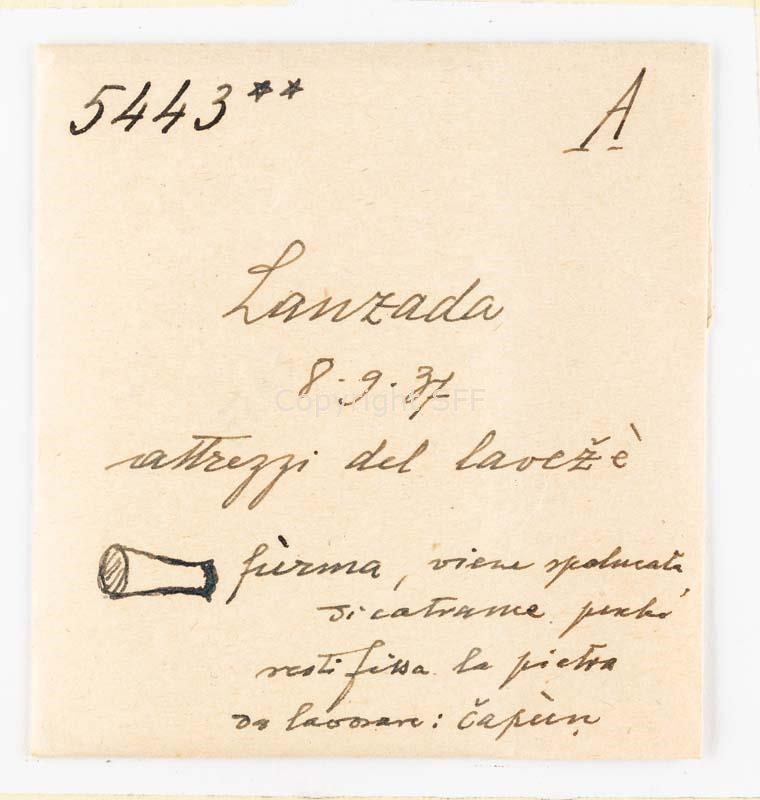 5443** A
Lanzada
8.9.37
Copyright SFF
attrezzi del lavežè
fùrma, viene spalmata
di catrame perchè
resti fissa la pietra
da lavorare: čapùṇ